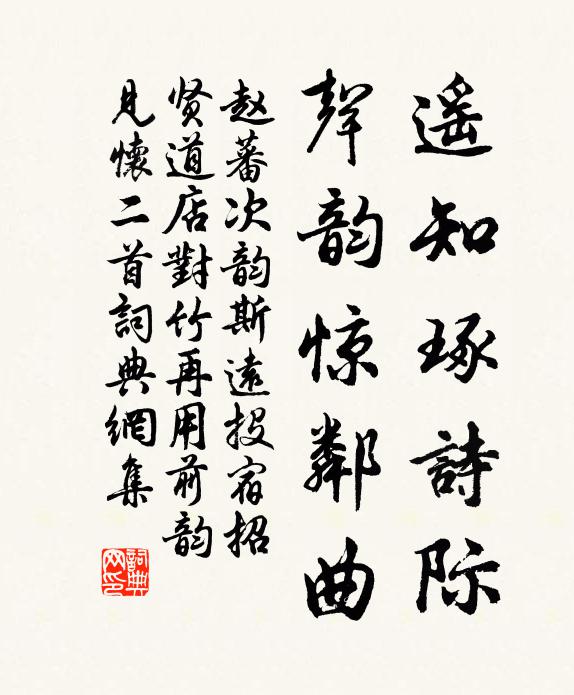 遥知琢詩际
聲韵惊鄰曲
赵蕃次韵斯遠投宿招
贤道店對竹再用前韵
見懷二首詞典網集
詞典网印